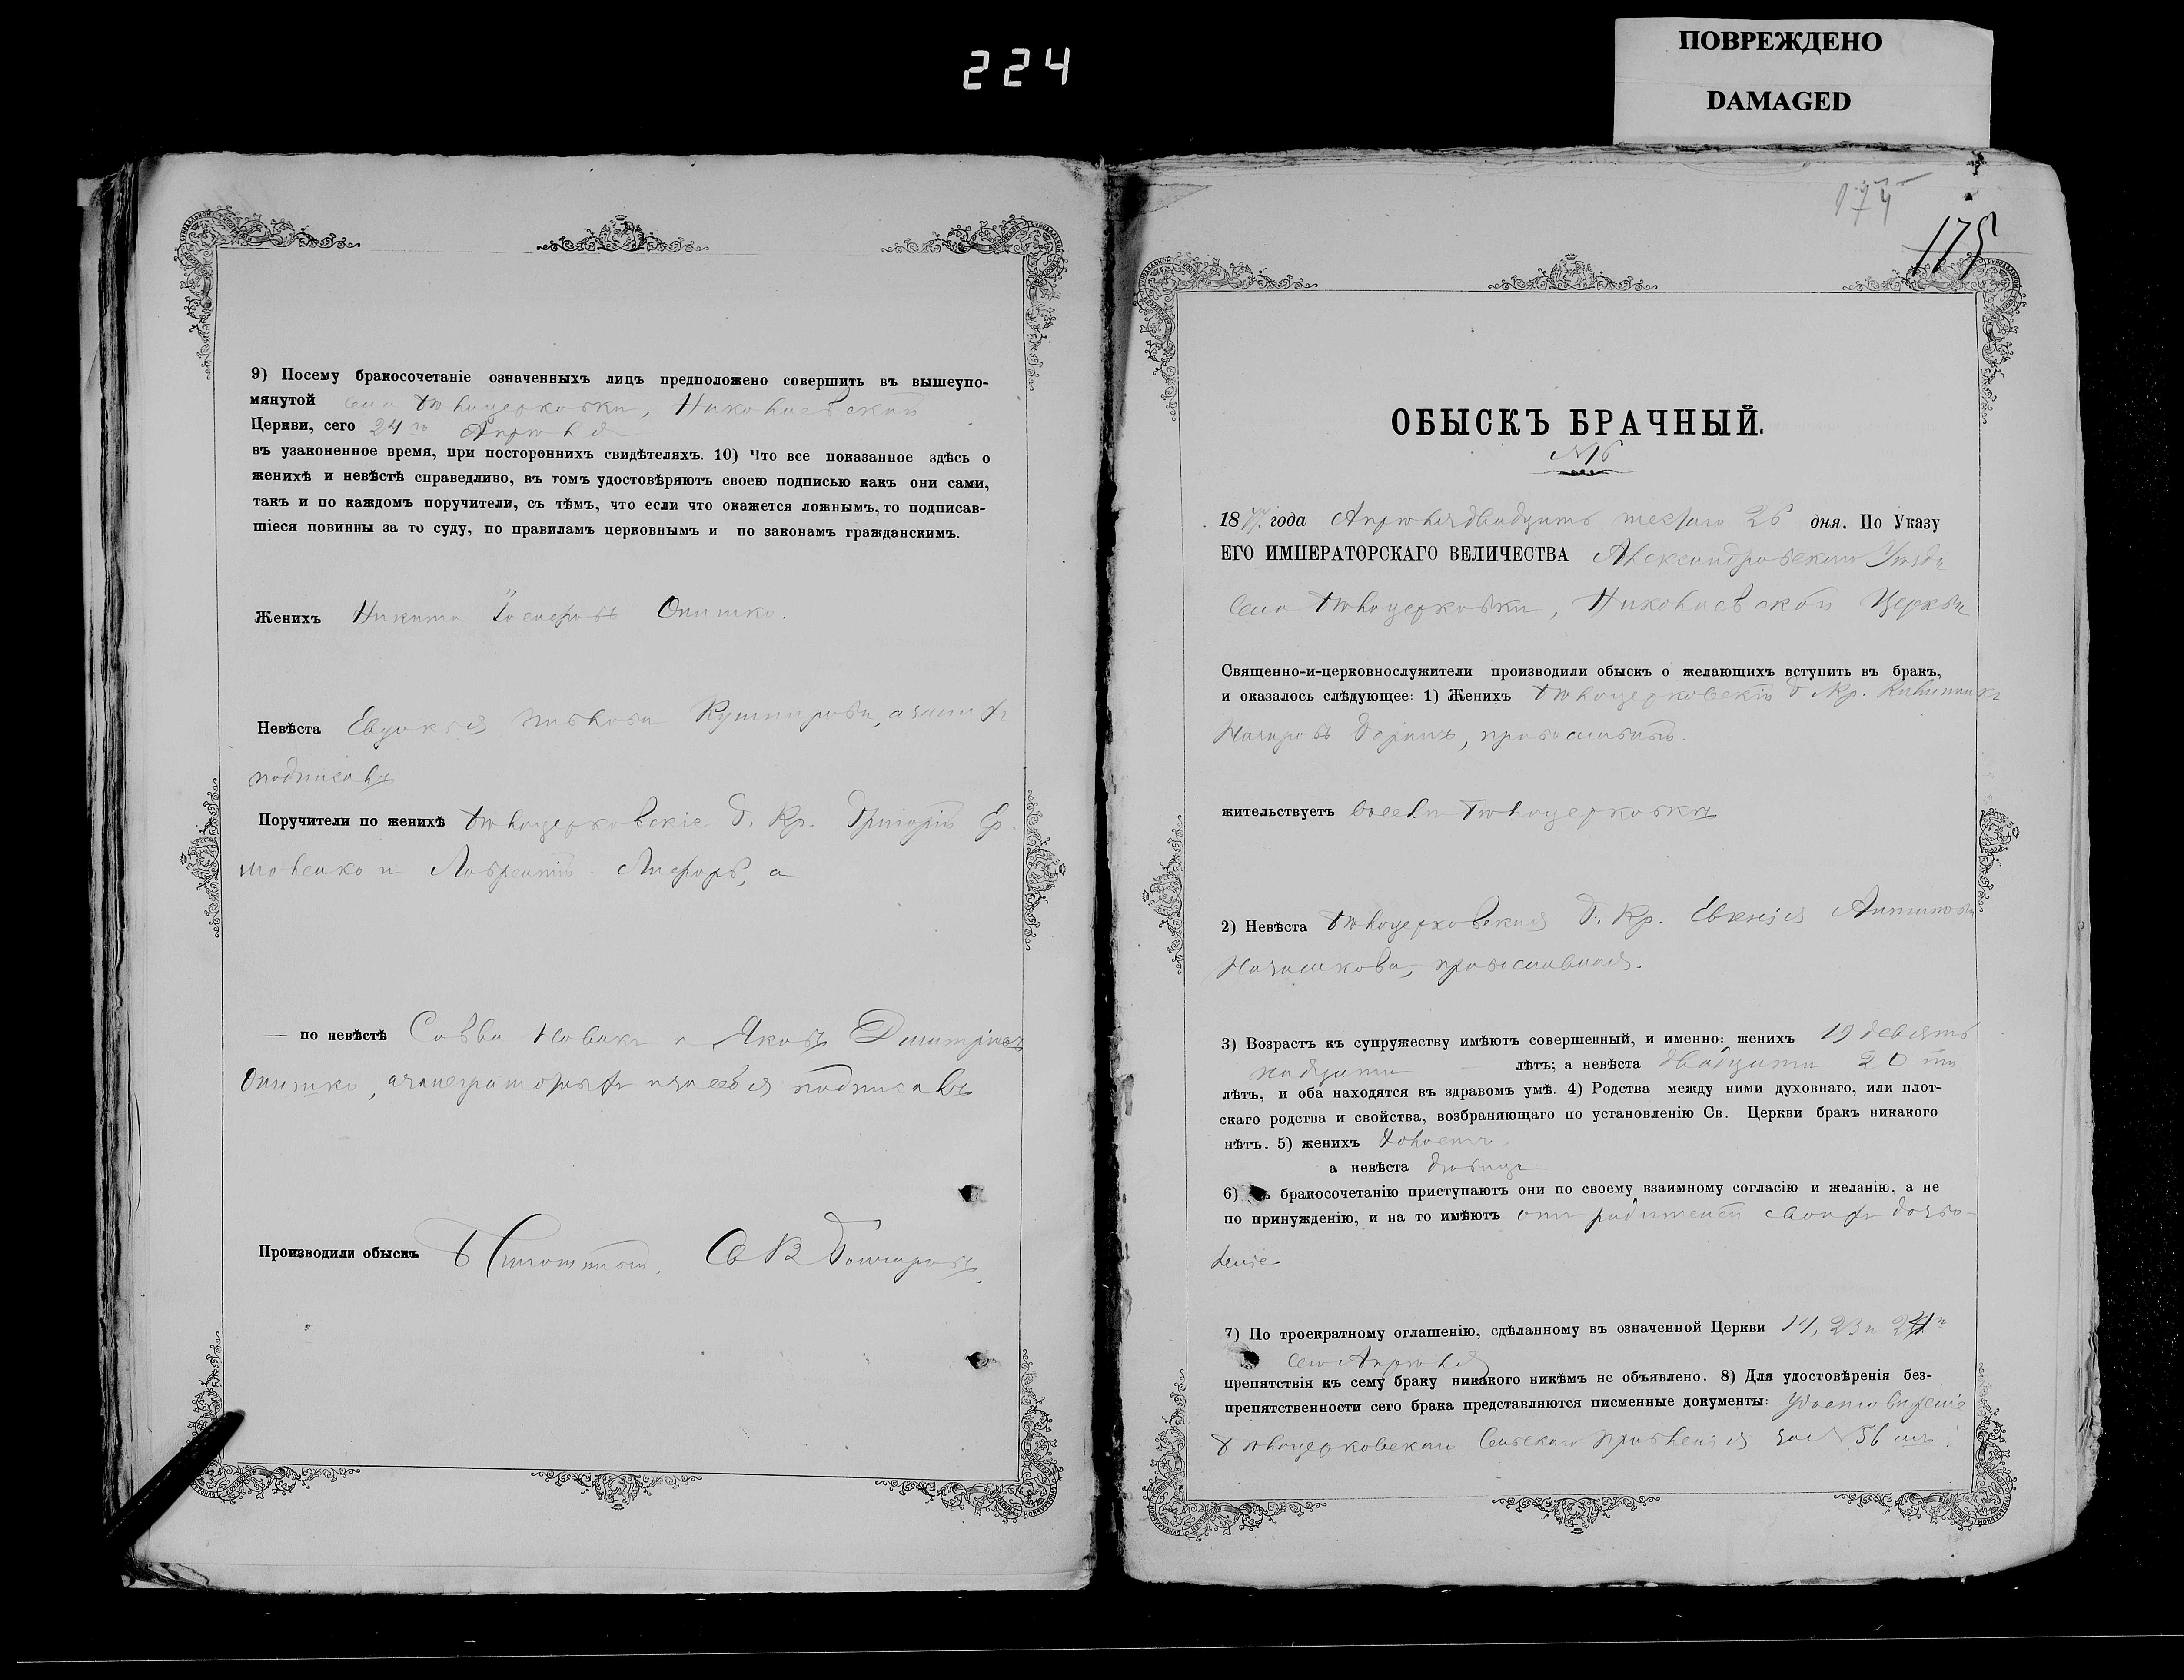 224
ПОВРЕЖДЕНО
DAMAGED
9) Посему бракосочетаніе означенныхъ лицъ предположено совершить въ вышеупо-
мянутой села Бѣлоцерковки, Николаевской
Церкви, сего 24го Апрѣля
въ узаконенное время, при постороннихъ свидѣтеляхъ. 10) Что все показанное здѣсь о
женихѣ и невѣстѣ справедливо, въ томъ удостовѣряютъ своею подписью какъ они сами,
такъ и по каждомъ поручители, съ тѣмъ, что если что окажется ложнымъ, то подписав-
шіеся повинны за то суду, по правиламъ церковнымъ и по законамъ гражданскимъ.
Женихъ Никита Іосифовъ Опишко.
Невѣста Евдокія Кушнирова, а за
подписалъ
Поручители по женихѣ Бѣлоцерковскіе Г. Кр. Григорій Ер-
моленко и Лаврентій а
— по невѣстѣ Савва Новакъ и Яковъ Димитріевъ
Опишко, а за неграмотныхъ и за себя подписалъ
Производили обыскъ
174
175
ОБЫСКЪ БРАЧНЫЙ.
№16
1877 года Апрѣля двадцать 26 дня. По Указу
ЕГО ИМПЕРАТОРСКАГО ВЕЛИЧЕСТВА Александровскаго Уѣзда
села Бѣлоцерковки, Николаевской Церкви
Священно-и-церковнослужители производили обыскъ о желающихъ вступить въ бракъ,
и оказалось слѣдующее: 1) Женихъ Бѣлоцерковскій Г. Кр.
Назаровъ православный.
жительствуетъ въ селѣ Бѣлоцерковкѣ
2) Невѣста Бѣлоцерковская Г. Кр. Евгенія Антипова
православная.
3) Возрастъ къ супружеству имѣютъ совершенный, и именно: женихъ 19 девят-
надцати — лѣтъ; а невѣста двадцати 20 ти
лѣтъ, и оба находятся въ здравомъ умѣ. 4) Родства между ними духовнаго, или плот-
скаго родства и свойства, возбраняющаго по установленію Св. Церкви бракъ никакого
нѣтъ. 5) женихъ холостъ,
а невѣста дѣвица
6) бракосочетанію приступаютъ они по своему взаимному согласію и желанію, а не
по принужденію, и на то имѣютъ отъ родителей своихъ дозво-
леніе
7) По троекратному оглашенію, сдѣланному въ означенной Церкви 17, 23 и 24го
сего Апрѣля
препятствія къ сему браку никакого никѣмъ не объявлено. 8) Для удостовѣренія без-
препятственности сего брака представляются писменные документы: Удостовѣреніе
Бѣлоцерковскаго Сельскаго Правленія за № 56